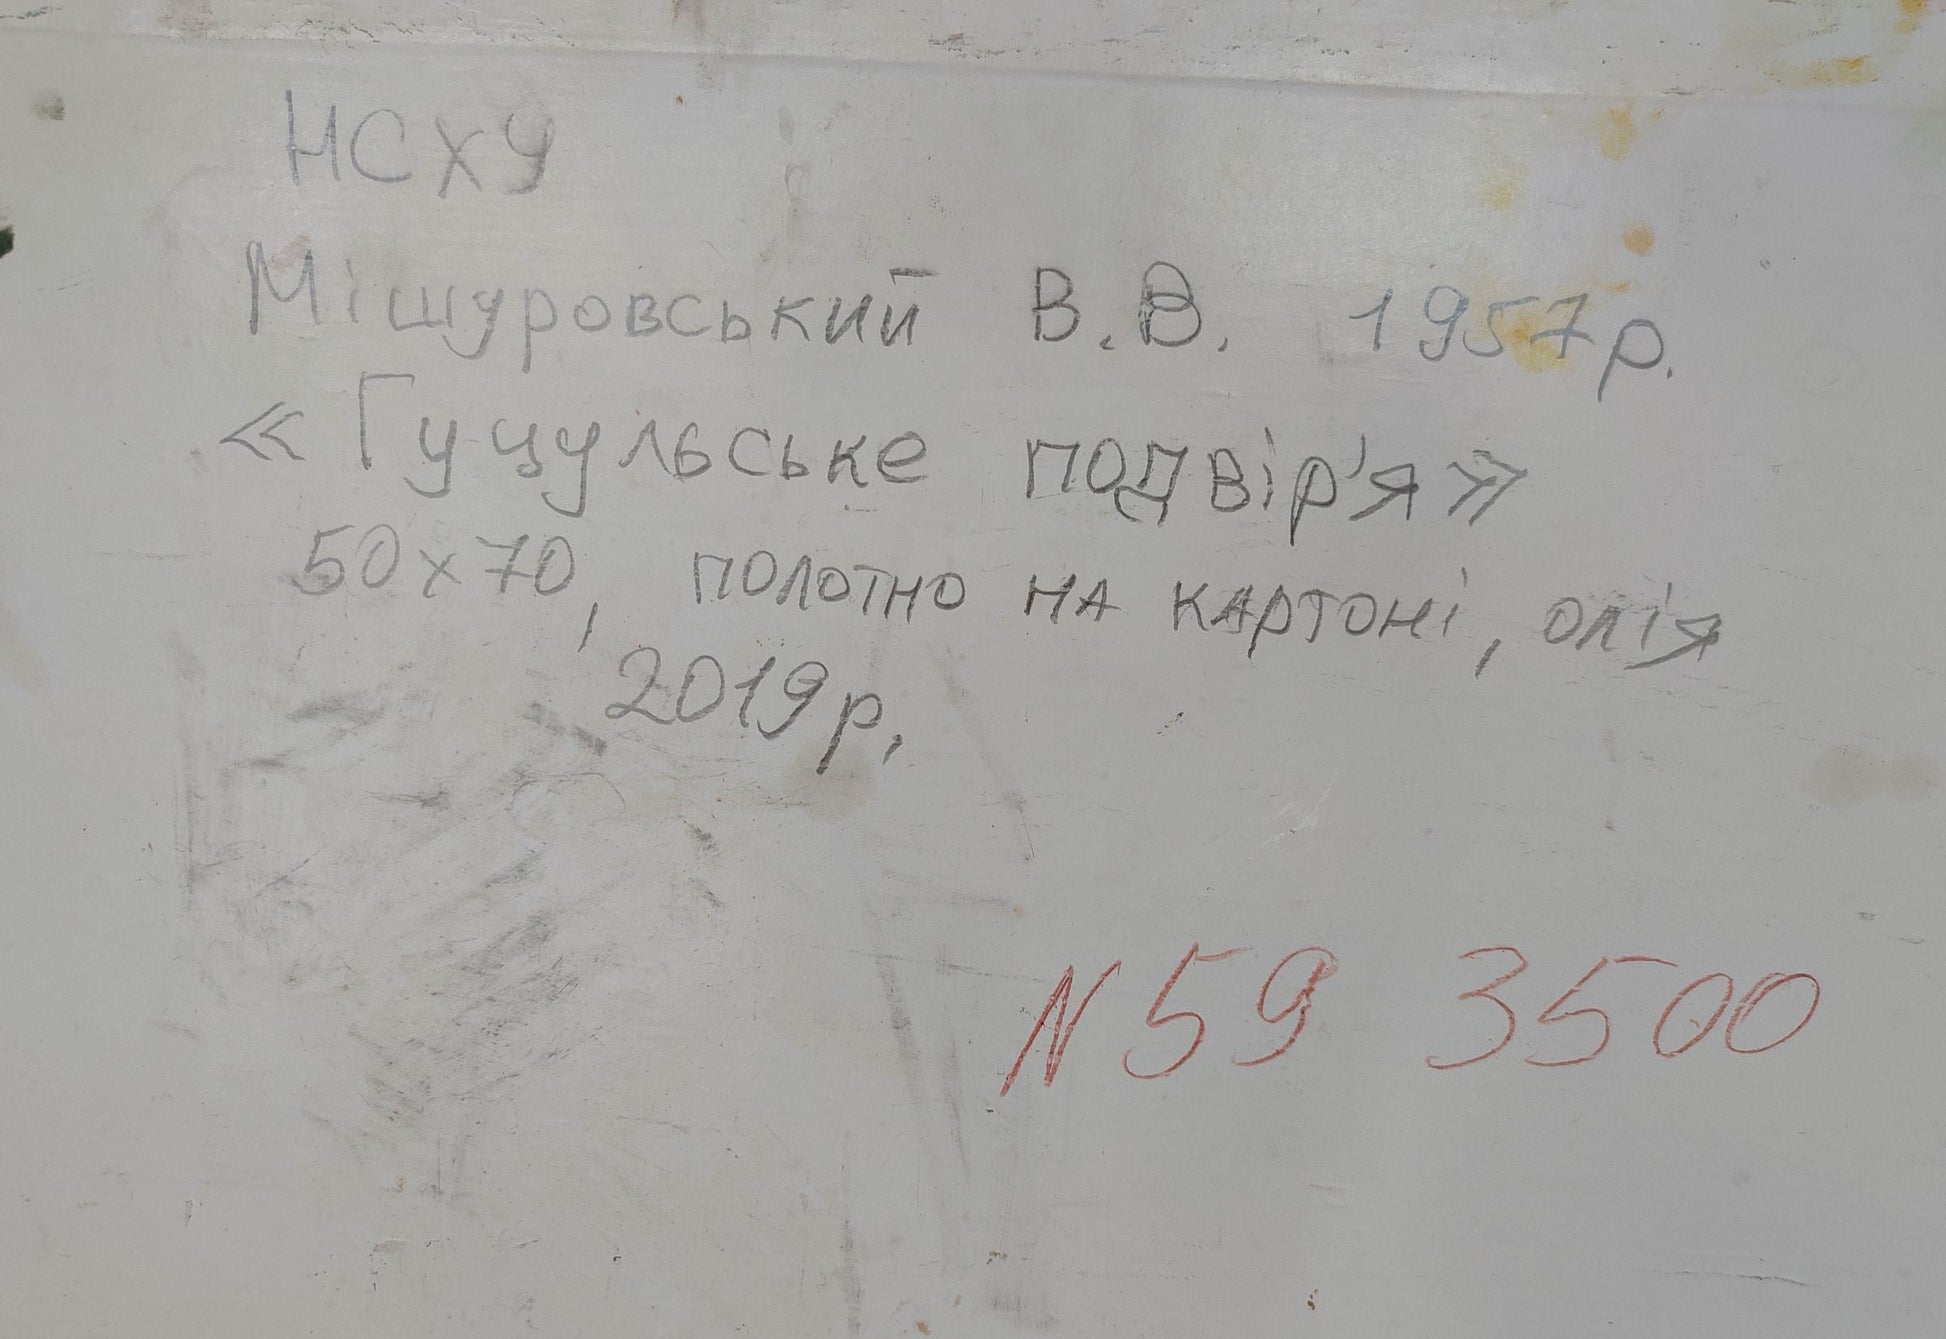 НСХУ
Мішуровський В.В. 1957р.
«Гуцульське подвір'я»
50х70, полотно на картоні, олія
2019р.
N 59 3500